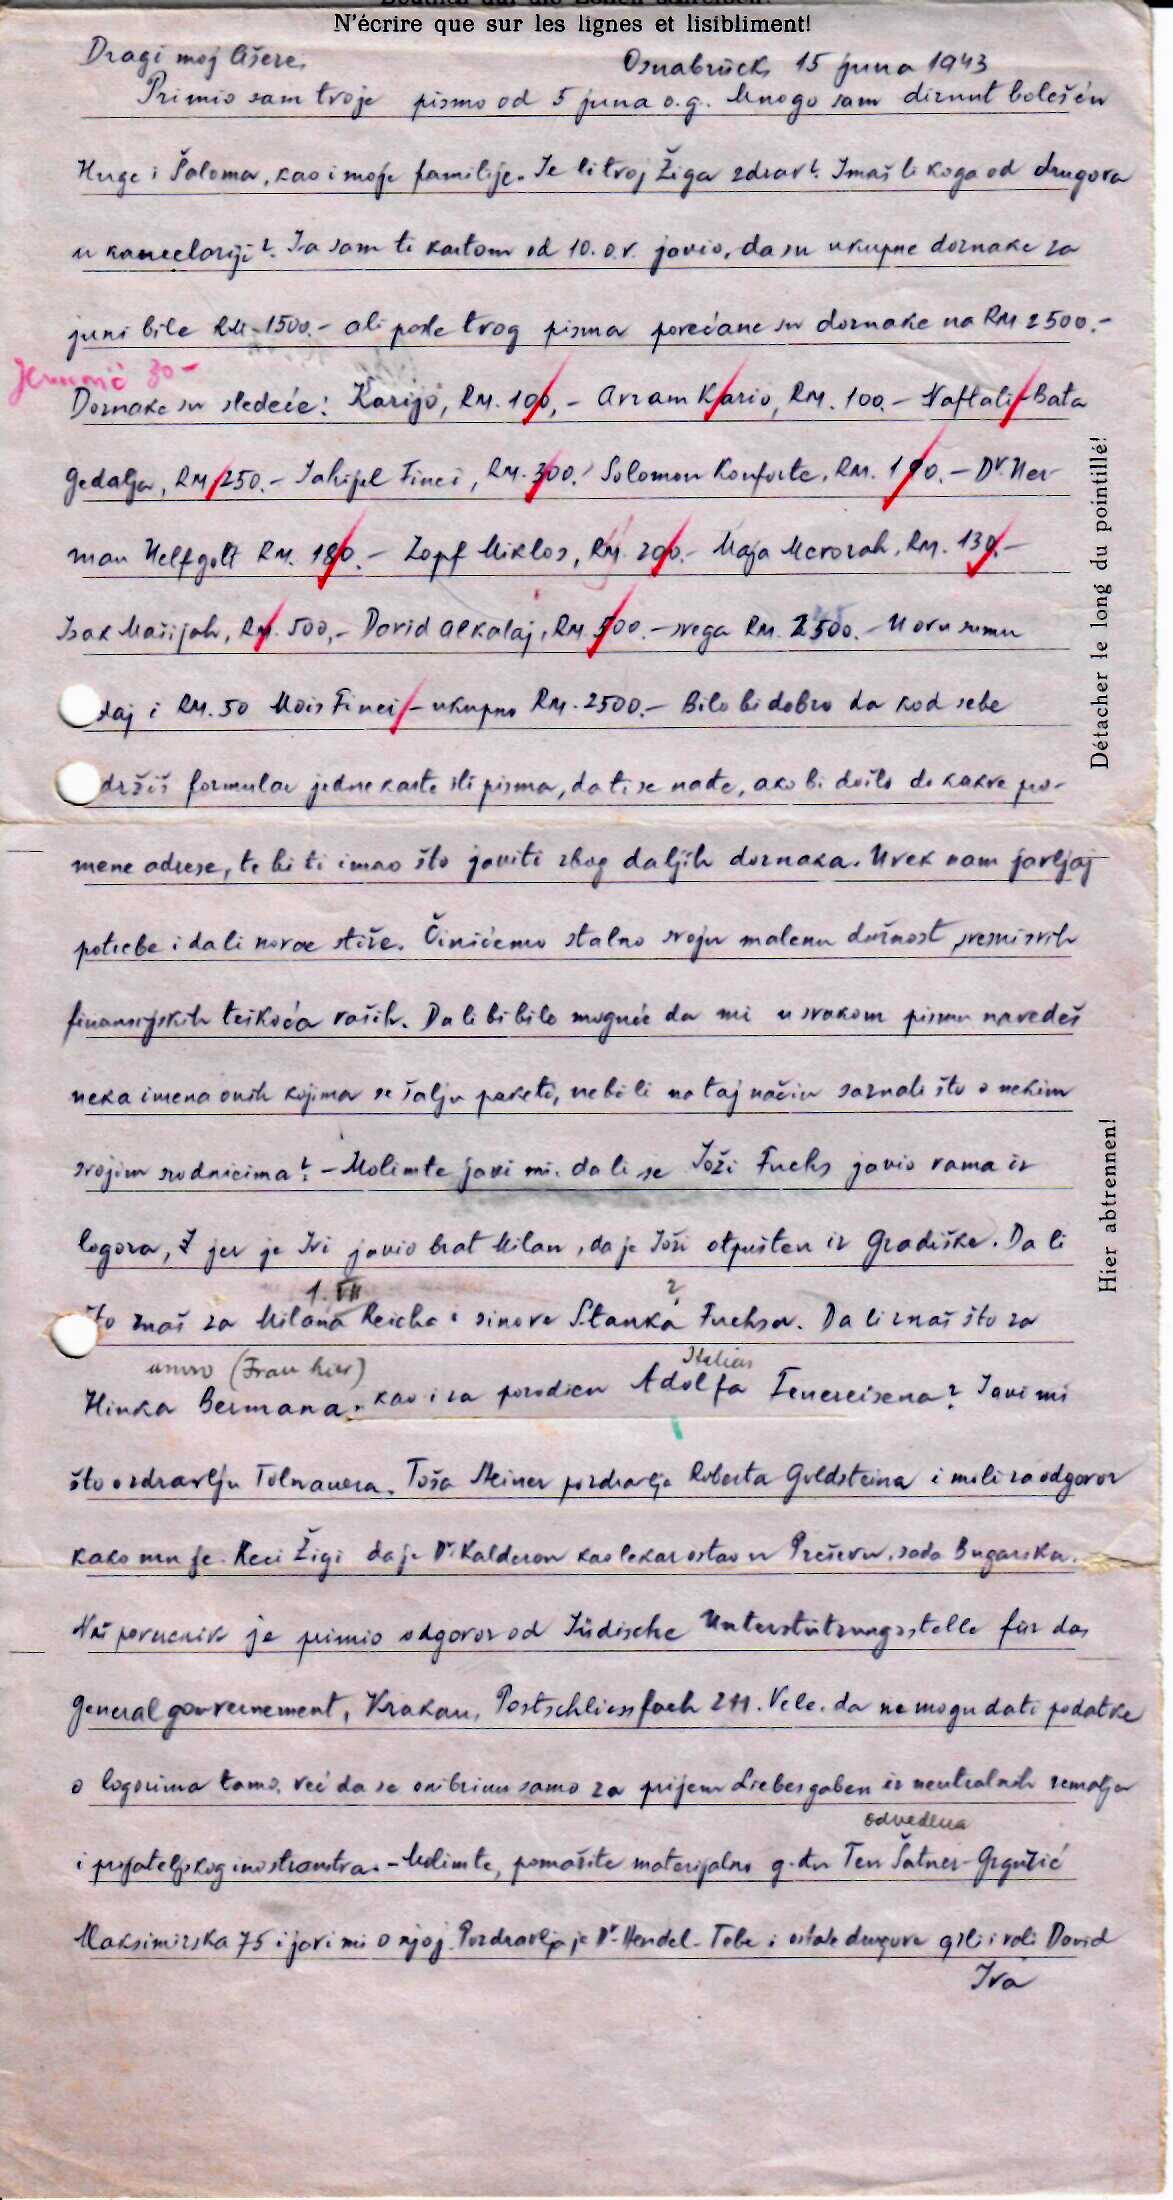 Deutlich auf die Zeilen schreiben!
N'écrire que sur les lignes et lisibliment!
Dragi moj Ašere, Osnabrück, 15 juna 1943
Primio sam tvoje pismo od 5 juna o.g. Mnogo sam dirnut bolešću
Huge i Šaloma, kao i moje familije. Je li tvoj Žiga zdrav? Imaš li koga od drugova
u kancelariji? Ja sam ti kartom od 10. o.v. javio, da su ukupne doznake za
juni bile RM. 1500.- ali posle tvog pisma povećane su doznake na RM 2500.-
30-
Doznake su sledeće: Karijo, RM. 100,- Avram Kario, RM. 100.- Naftali-Bata
Gedalja, RM. 250.- Jahijel Finci, RM. 300.- Solomon Konforte, RM. 190.- Dr. Her-
man Helfgolt RM. 180.- Zopf Miklos, RM. 200.- Maja Mevorah, RM. 130.-
Isak Mašijah, RM. 500,- David Alkalaj, RM. 500.- svega RM. 2500.- U ovu sumu
daj i RM. 50 Mois Finci - ukupno RM. 2500.- Bilo bi dobro da kod sebe
držiš formular jedne karte ili pisma, da ti se nađe, ako bi došlo do kakve pro-
mene adrese, te bi ti imao što javiti zbog daljih doznaka. Uvek nam javljaj
potrebe i da li novac stiže. Činićemo stalno svoju malenu dužnost svesni svih
finansijskih teškoća vaših. Da li bi bilo moguće da mi u svakom pismu navedeš
neka imena onih kojima se šalju paketi, ne bi li na taj način saznali što o nekim
svojim srodnicima? - Molim te javi mi, da li se Joži Fuchs javio vama iz
logora, jer je Ivi javio brat Milan, da je Joži otpušten iz Gradiške. Da li
1. VII ?
što znaš za Milana Reicha i sinove Stanka Fuchsa. Da li znaš što za
umro (Frau hier) Italien
Hinka Bermana, kao i za porodicu Adolfa Feuereisena? Javi mi
što o zdravlju Tolnauera. Toša Steiner pozdravlja Roberta Goldsteina i moli za odgovor
kako mu je. Reci Žigi da je Dr. Kalderon kao lekar ostao u Preševu, sada Bugarska.
Naš poverenik je primio odgovor od Jüdische Unterstützungsstelle für das
Generalgouvernement, Krakau, Postschliessfach 211. Vele, da ne mogu dati podatke
o logorima tamo, već da se oni brinu samo za prijem Liebesgaben iz neutralnih zemalja
odvedena
i prijateljskog inostranstva. - Molim te, pomažite materijalno g-đu Šatner-Grgužić
Maksimirska 75 i javi mi o njoj. Pozdravlja je Dr. Hendel. Tebe i ostale drugove grli i voli David
Iva
Détacher le long du pointillé!
Hier abtrennen!